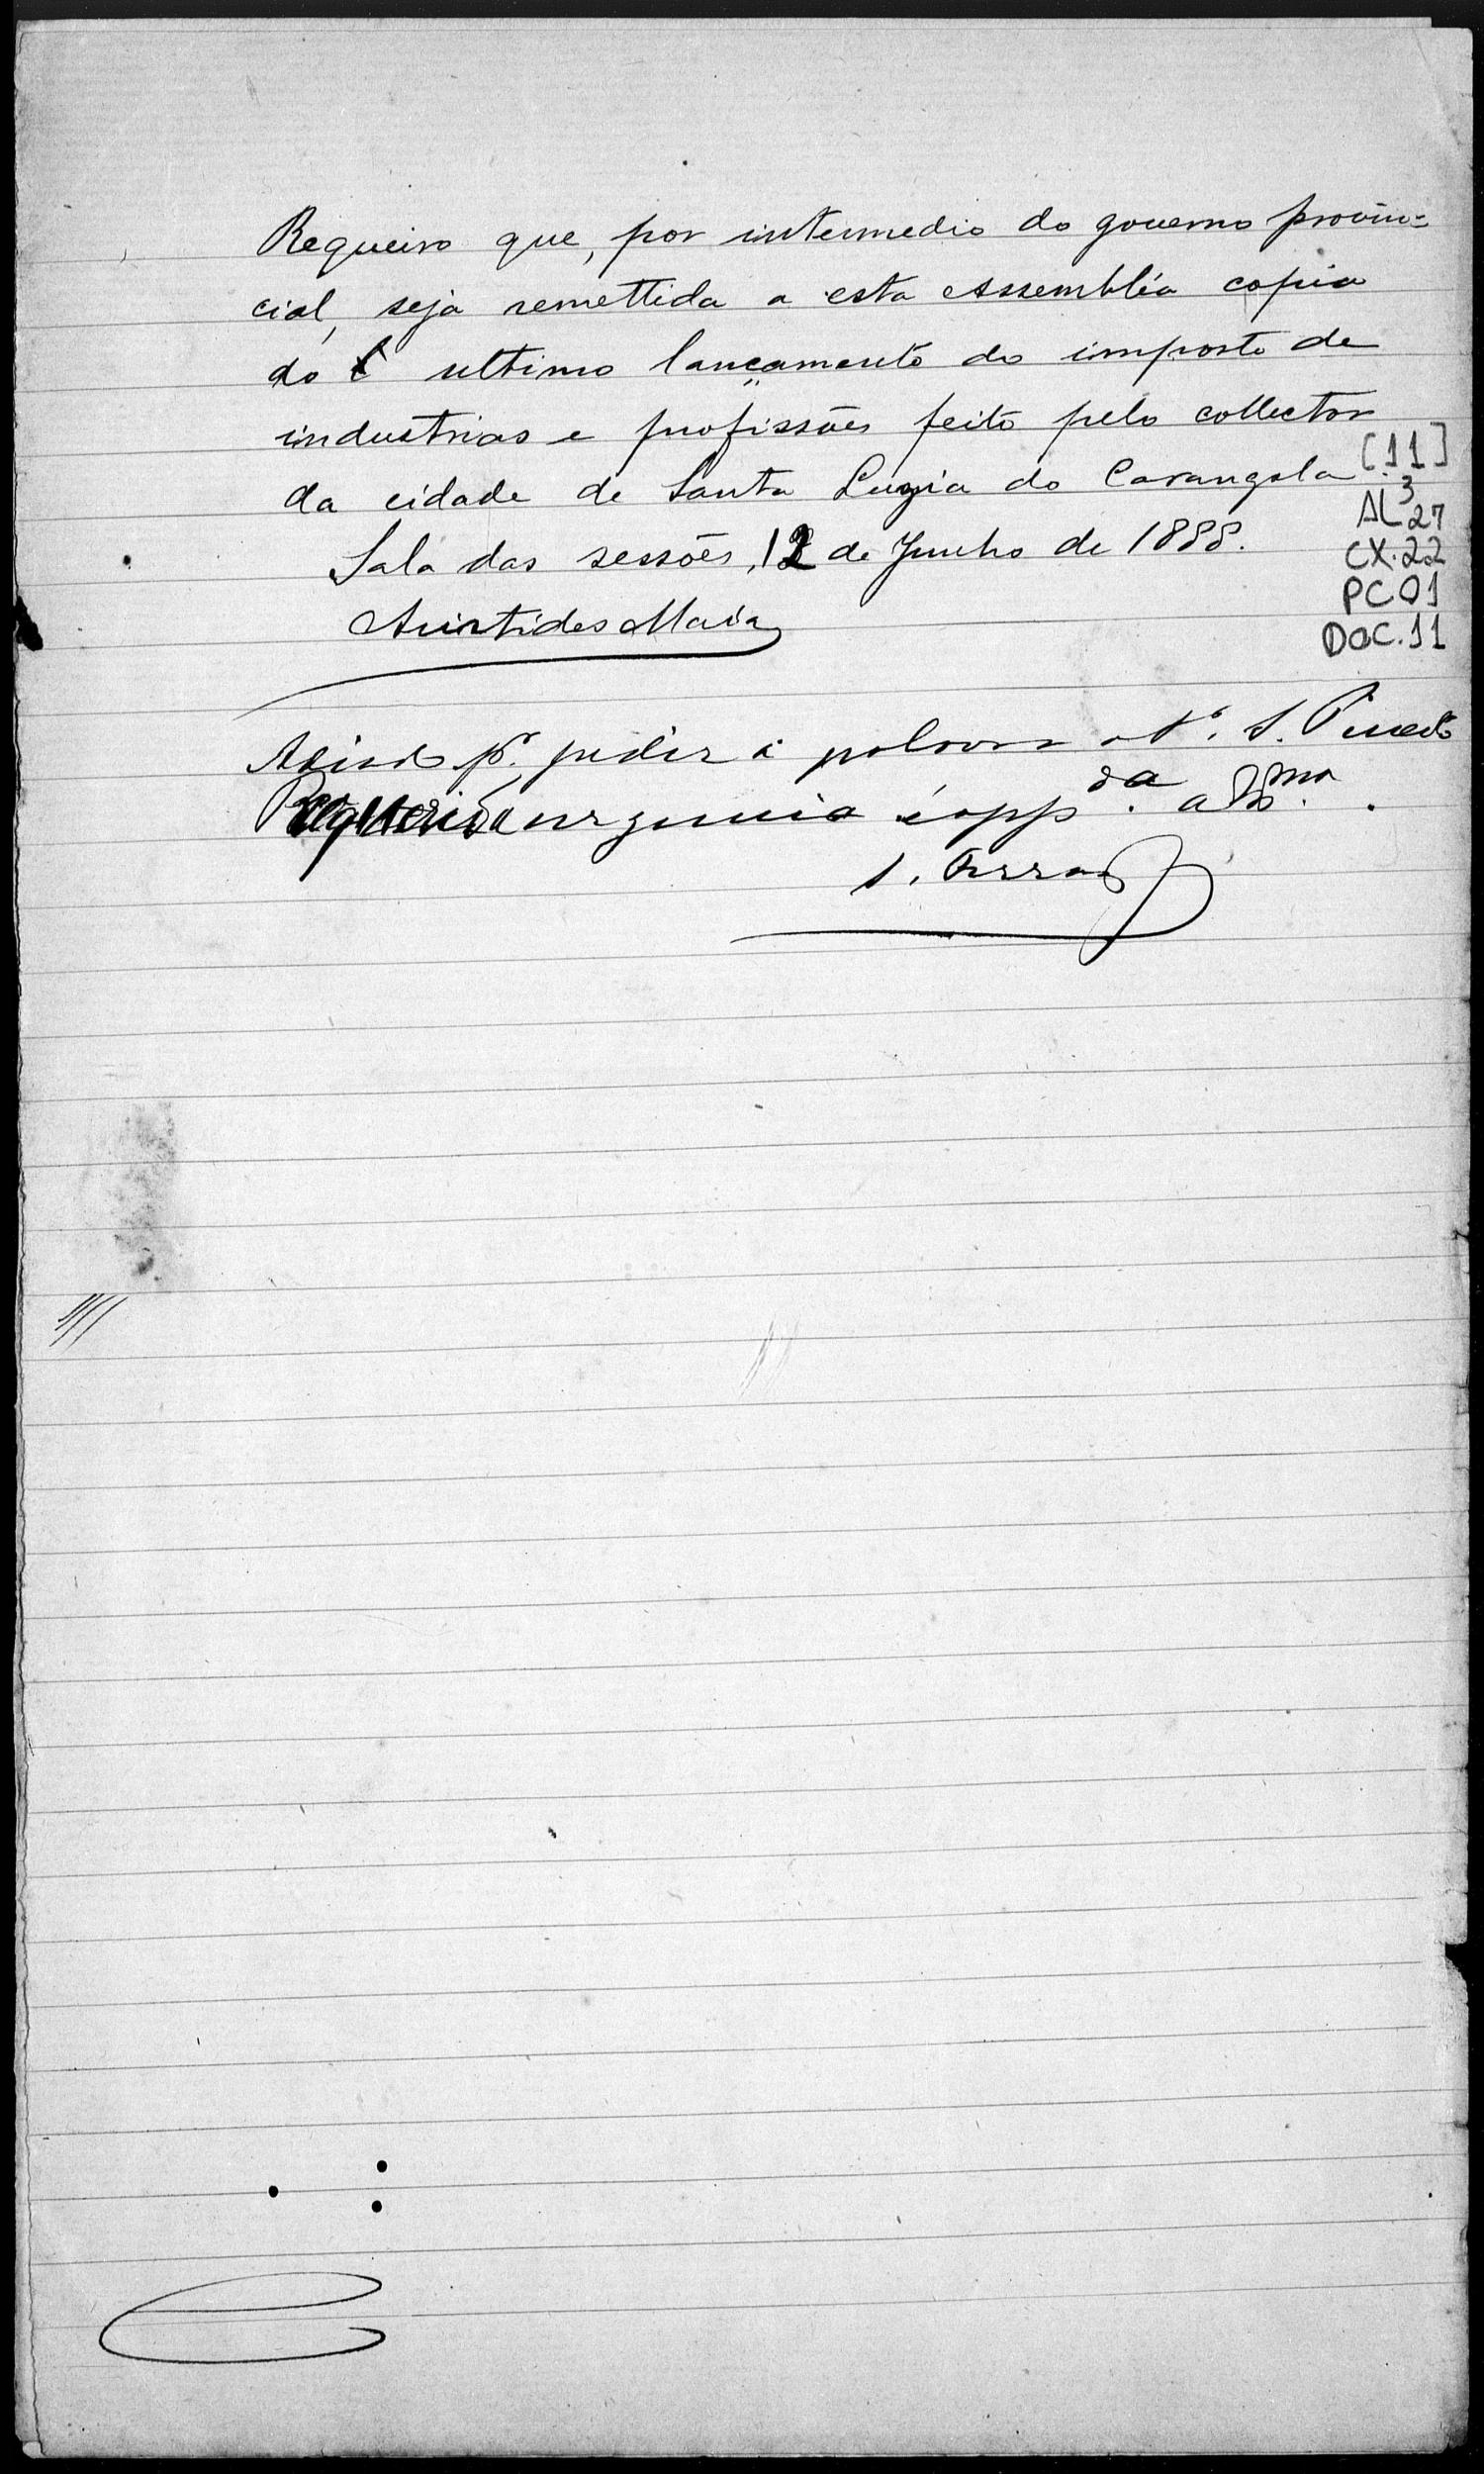 Requeiro que, por intermedio do governo provin=
cial, seja remettida a esta Assembléa copia
do ultimo lançamento do imposto de
industrias e profissões feito pelo collector
da cidade de Santa Luzia do Carangola.
Sala das sessões, 12 de Junho de 1888.
Aristides Maia
[11]
AL3 27
CX.22
PC 01
DOC.11
Adiado pr. pedir a palavra o Sr. S.
Requerida urgencia é appda. a
S.